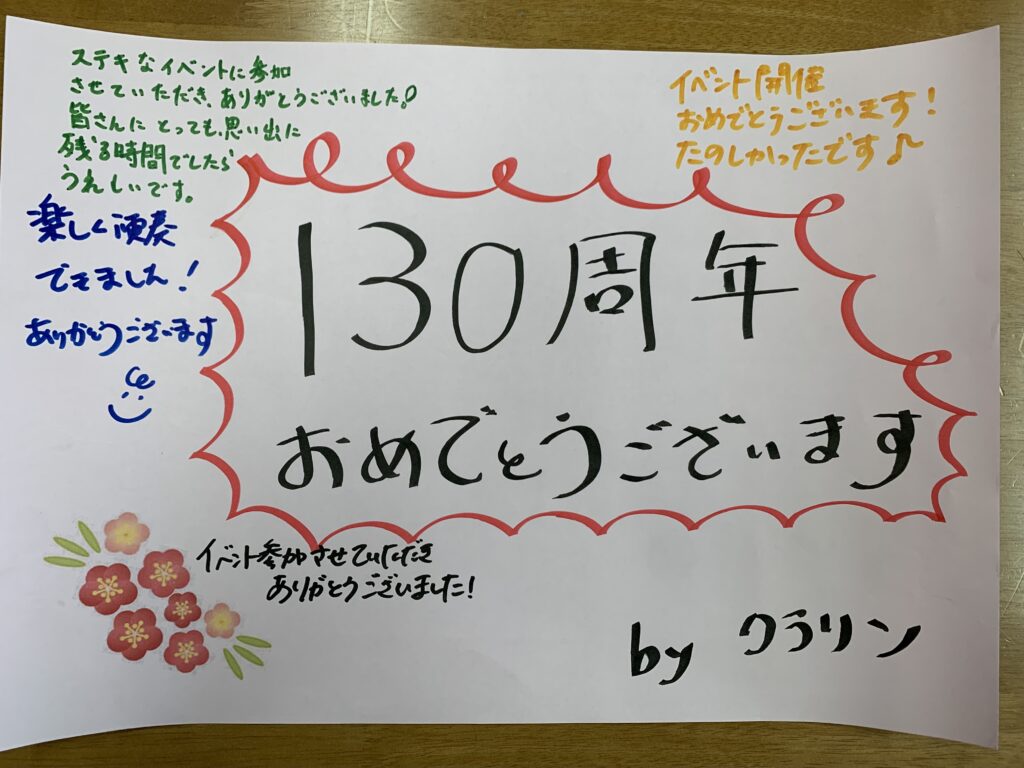 ステキなイベントに参加
させていただき、ありがとうございました!
皆さんにとっても、思い出に
残る時間でしたら
うれしいです。
イベント開催
おめでとうございます!
たのしかったです♪
楽しく演奏
できました!
ありがとうございます
130周年
おめでとうございます
イベント参加させていただき
ありがとうございました!
by クラリン